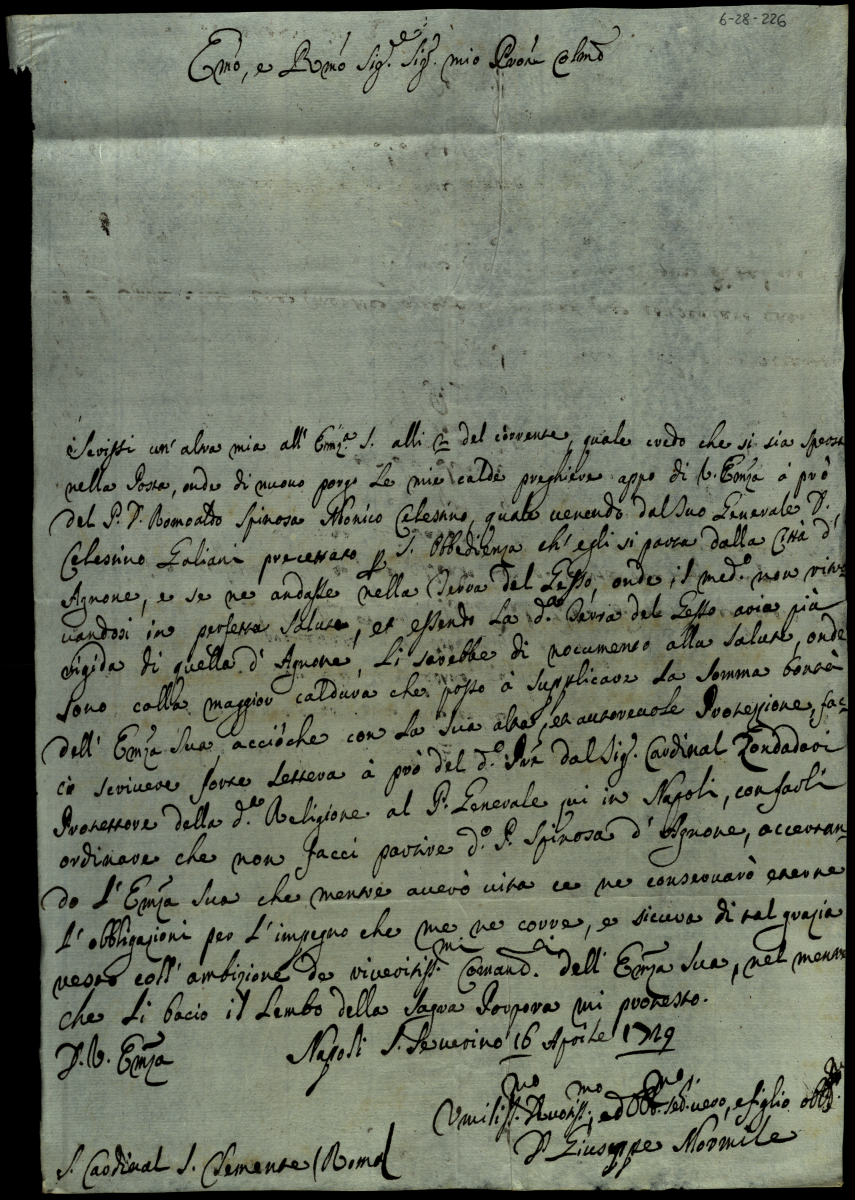 6-28-226
Emo, e Rmo Sig.r Sig.r mio Prõne Colmo
Scrissi un' altra mia all' Emza S. alli 2 del corrente, quale credo che si sia spersa
nella Posta, onde di nuovo porgo le mie calde preghiere appo di V. Emza à prò
del P. D. Romoaldo Spinosa Monico Celestino, quale venendo dal Suo Generale D.
Celestino Galiani precettato p S. Obbedienza ch' egli si parta dalla Città d'
Agnone, e se ne andasse nella Terra del Gesso, onde il med.o non ritro=
vandosi in perfetta salute, et essendo la d.a Terra del Gesso aria più
rigida di quella d' Agnone, li sarebbe di nocumento alla salute, onde
sono colla maggior caldura che posso à supplicare la somma bontà
dell' Emza Sua, acciòche con la sua alta, et autorevole Protezione, fac=
ci scrivere forte lettera à prò del d.o Prê dal Sig.r Cardinal Zondadari
Protettore della d.a Religione al P. Generale qui in Napoli, con farli
ordinare che non facci partire d.o P. Spinosa d' Agnone, accertan=
do l' Emza Sua che mentre averò vita ce ne conservarò eterne
l' obbligazioni per l' impegno che me ne corre, e sicuro di tal grazia
resto coll' ambizione de riveritiss.mi Comand.i dell' Emza Sua, nel mentre
che li bacio il lembo della Sagra Porpora mi protesto.
D. V. Emza Napoli S. Severino 16 Aprile 1729
Umiliss.mo Devotiss.mo, ed Obb.mo Ser. vero, e figlio obbd.mo
D. Giuseppe Mormile
S. Cardinal S. Clemente (Roma)